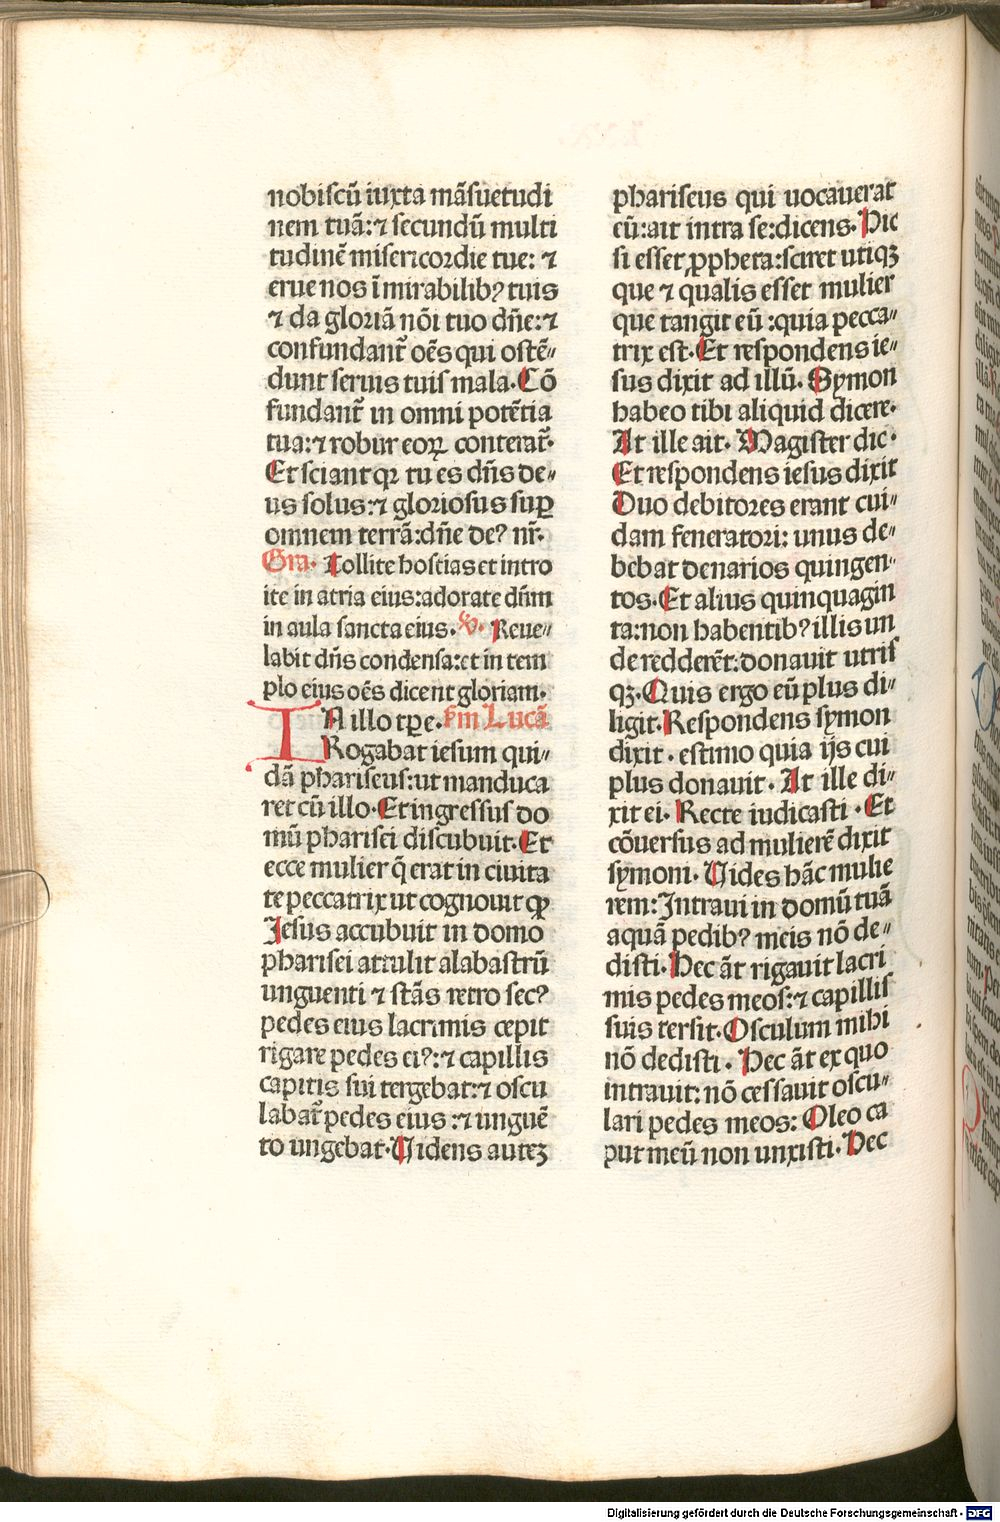 nobiscū iuxta mãsuetudi
nem tuã:⁊ secundũ multi
tudinē misericordie tue: ⁊
erue nos ĩ mirabilibꝰ tuis
⁊ da gloriã nõi tuo dñe:⁊
confundant᷑ oẽs qui ostẽ⸗
dunt seruis tuis mala. Cõ
fundant᷑ in omni potẽtia
tua:⁊ robur eoꝝ conterat᷑.
Et sciant qꝛ tu es dñs de⸗
us solus:⁊ gloriosus suꝑ
omnem terrã:dñe deꝰ nr̃.
Gra. Tollite hostias et intro
ite in atria eius:adorate dñm
in aula sancta eius. ℣. Reue⸗
labit dñs condensa:et in tem
plo eius oẽs dicent gloriam.
IN illo tꝑe. ẜm Lucã
Rogabat iesum qui⸗
dã phariseus:ut manduca
ret cũ illo. Et ingressus do
mũ pharisei discubuit. Et
ecce mulier q̃ erat in ciuita
te peccatrix ut cognouit ꝙ
Iesus accubuit in domo
pharisei attulit alabastrũ
unguenti ⁊ stãs retro secꝰ
pedes eius lacrimis cepit
rigare pedes eiꝰ:⁊ capillis
capitis sui tergebat:⁊ oscu
labat᷑ pedes eius :⁊ unguẽ
to ungebat. Uidens auteꝫ
phariseus qui uocauerat
eũ:ait intra se:dicens. Hic
si esset ꝓpheta:sciret utiqꝫ
que ⁊ qualis esset mulier
que tangit eũ :quia pecca⸗
trix est. Et respondens ie⸗
sus dixit ad illũ. Symon
habeo tibi aliquid dicere.
At ille ait. Magister dic.
Et respondens iesus dixit
Duo debitores erant cui⸗
dam feneratori: unus de⸗
bebat denarios quingen⸗
tos. Et alius quinquagin
ta:non habentibꝰ illis un
de redderẽt:donauit utris
qꝫ. Quis ergo eũ plus di⸗
ligit. Respondens symon
dixit . estimo quia ijs cui
plus donauit. At ille di⸗
xit ei. Recte iudicasti . Et
cõuersus ad mulierẽ dixit
symoni. Uides hãc mulie
rem:Intraui in domũ tuã
aquã pedibꝰ meis nõ de⸗
disti. Hec aũt rigauit lacri
mis pedes meos:⁊ capillis
suis tersit. Osculum mihi
nõ dedisti. Hec aũt ex quo
intrauit: nõ cessauit oscu⸗
lari pedes meos: Oleo ca
put meũ non unxisti. Hec
Digitalisierung gefördert durch die Deutsche Forschungsgemeinschaft - DFG